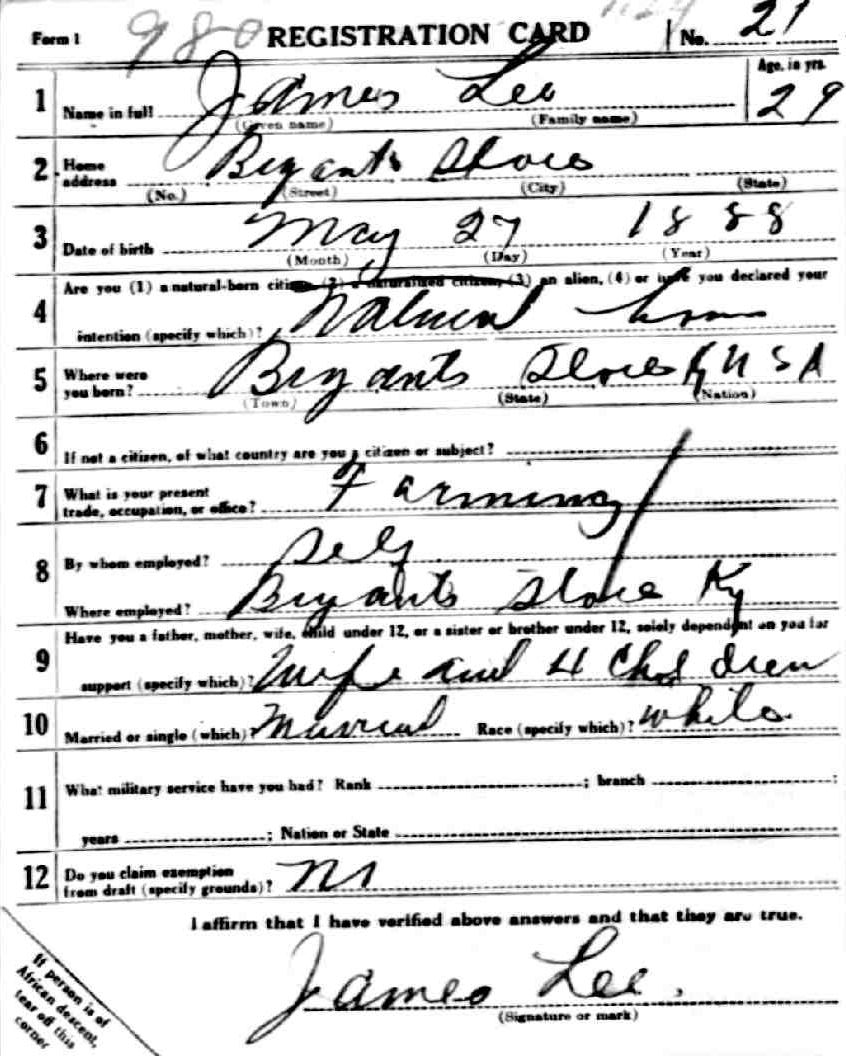 Form 1 980 REGISTRATION CARD No. 21
1 Name in full James Lee Age, in yrs. 29
(Given name) (Family name)
2 Home address Bryants Store
(No.) (Street) (City) (State)
3 Date of birth May 27 1888
(Month) (Day) (Year)
4 Are you (1) a natural-born citizen, (2) a naturalized citizen, (3) an alien, (4) or have you declared your
intention (specify which)? Natural born
5 Where were you born? Bryants Store Ky U S A
(Town) (State) (Nation)
6 If not a citizen, of what country are you a citizen or subject?
7 What is your present trade, occupation, or office? Farming
8 By whom employed? Self
Where employed? Bryants Store Ky
9 Have you a father, mother, wife, child under 12, or a sister or brother under 12, solely dependent on you for
support (specify which)? Wife and 4 Children
10 Married or single (which)? Married Race (specify which)? White
11 What military service have you had? Rank ; branch ;
years ; Nation or State
12 Do you claim exemption from draft (specify grounds)? No
I affirm that I have verified above answers and that they are true.
James Lee.
(Signature or mark)
If person is of
African descent,
tear off this
corner